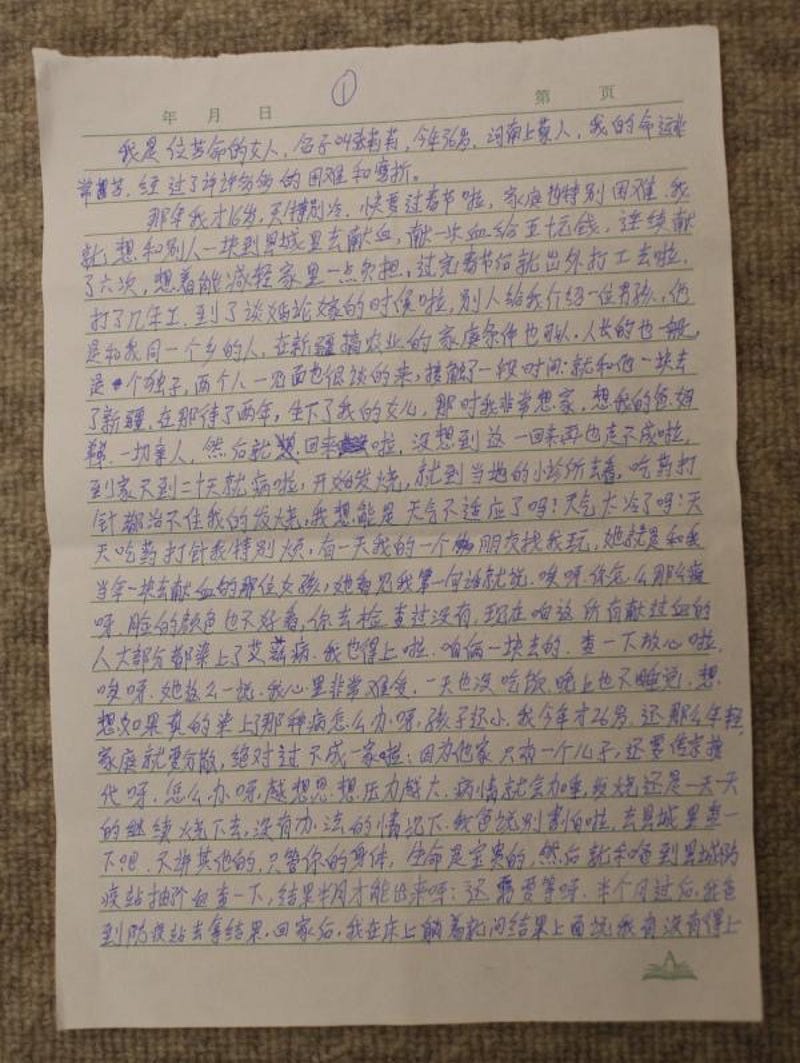 ①
年 月 日
第 页
我是位苦命的女人,名子叫张莉莉,今年36岁,河南上蔡人,我的命运非
常苦,经过了许许多多的困难和磨折。
那年我才16岁,天特别冷,快要过春节啦,家庭特别困难,我
就想和别人一块到县城里去献血,献一次血给五十元钱,连续献
了六次,想着能减轻家里一点负担,过完春节后就出外打工去啦,
打了几年工,到了谈婚论嫁的时候啦,别人给我介绍一位男孩,他
是和我同一个乡的人,在新疆搞农业的家庭条件也可以,人长的也一般,
是个独子,两个人一见面也很谈的来,接触了一段时间,就和他一块去
了新疆,在那待了两年,生下了我的女儿,那时我非常想家,想我的爸妈
一切亲人,然后就回来啦,没想到这一回来再也走不成啦,
到家不到二十天就病啦,开始发烧,就到当地的小诊所去看,吃药打
针都治不住我的发烧,我想能是天气不适应了吗?天气太冷了吗?天
天吃药打针我特别烦,有一天我的一个朋友找我玩,她就是和我
当年一块去献血的那位女孩,她看见我第一句话就说,唉呀,你怎么那么瘦
呀,脸的颜色也不好看,你去检查过没有,现在咱这所有献过血的
人大部分都染上了艾滋病,我也得上啦,咱俩一块去的,查一下放心啦,
唉呀,她这么一说,我心里非常难受,一天也没吃饭,晚上也不睡觉,想
想如果真的染上了那种病怎么办呀,孩子还小,我今年才26岁,还那么年轻,
家庭就要分散,绝对过不成一家啦;因为他家只有一个儿子,还要传宗接
代呀,怎么办呀,越想思想压力越大,病情就会加重,发烧还是一天一天
的继续烧下去,没有办法的情况下,我爸说别害怕啦,去县城里查一
下吧,不讲其他的,只管你的身体,生命是宝贵的,然后就和爸到县城防
疫站抽血查一下,结果半月才能出来呀;还需要等呀,半个月过后,我爸
到防疫站去拿结果,回家后,我在床上躺着就问结果上面说我有没有得上